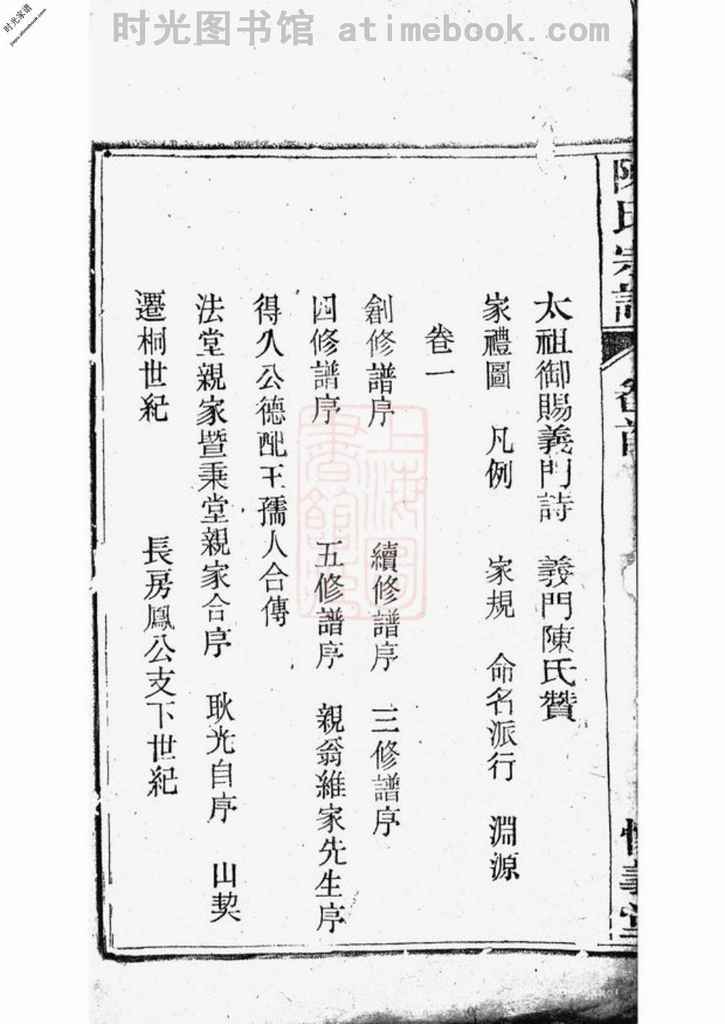 时光图书馆 atimebook.com
时光家谱
陳氏宗譜
卷首
太祖御賜義門詩 義門陳氏贊
家禮圖 凡例 家規 命名派行 淵源
卷一
創修譜序 續修譜序 三修譜序
四修譜序 五修譜序 親翁維家先生序
得久公德配王孺人合傳
法堂親家暨秉堂親家合序 耿光自序 山契
遷桐世紀 長房鳳公支下世紀
上海圖書館藏